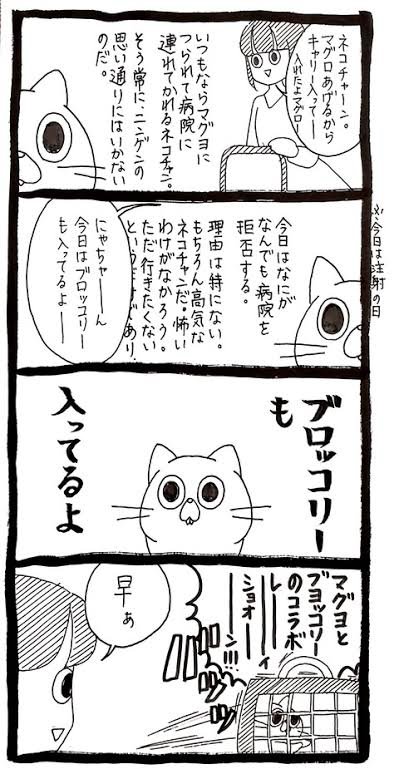 ネコチャーン。
マグロあげるから
キャリー入ってー
入れたよマグロー
いつもならマグヨに
つられて病院に
連れてかれるネコチャン。
そう常にニンゲンの
思い通りにはいかない
のだ。
※今日は注射の日
今日はなにが
なんでも病院を
拒否する。
理由は特にない。
もちろん高気な
ネコチャンだ。怖い
わけがなかろう。
ただ行きたくない
というだけであり、
にゃちゃーーん
今日はブロッコリー
も入ってるよーー
ブロッコリー
も
入ってるよ
マグヨと
ブヨッコリー
のコラボ
レーーィ
ショオーーン!!!
早ぁ